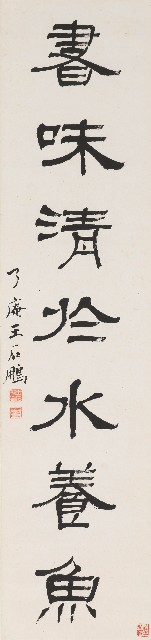 書味清於水養魚
了庵王石鵬